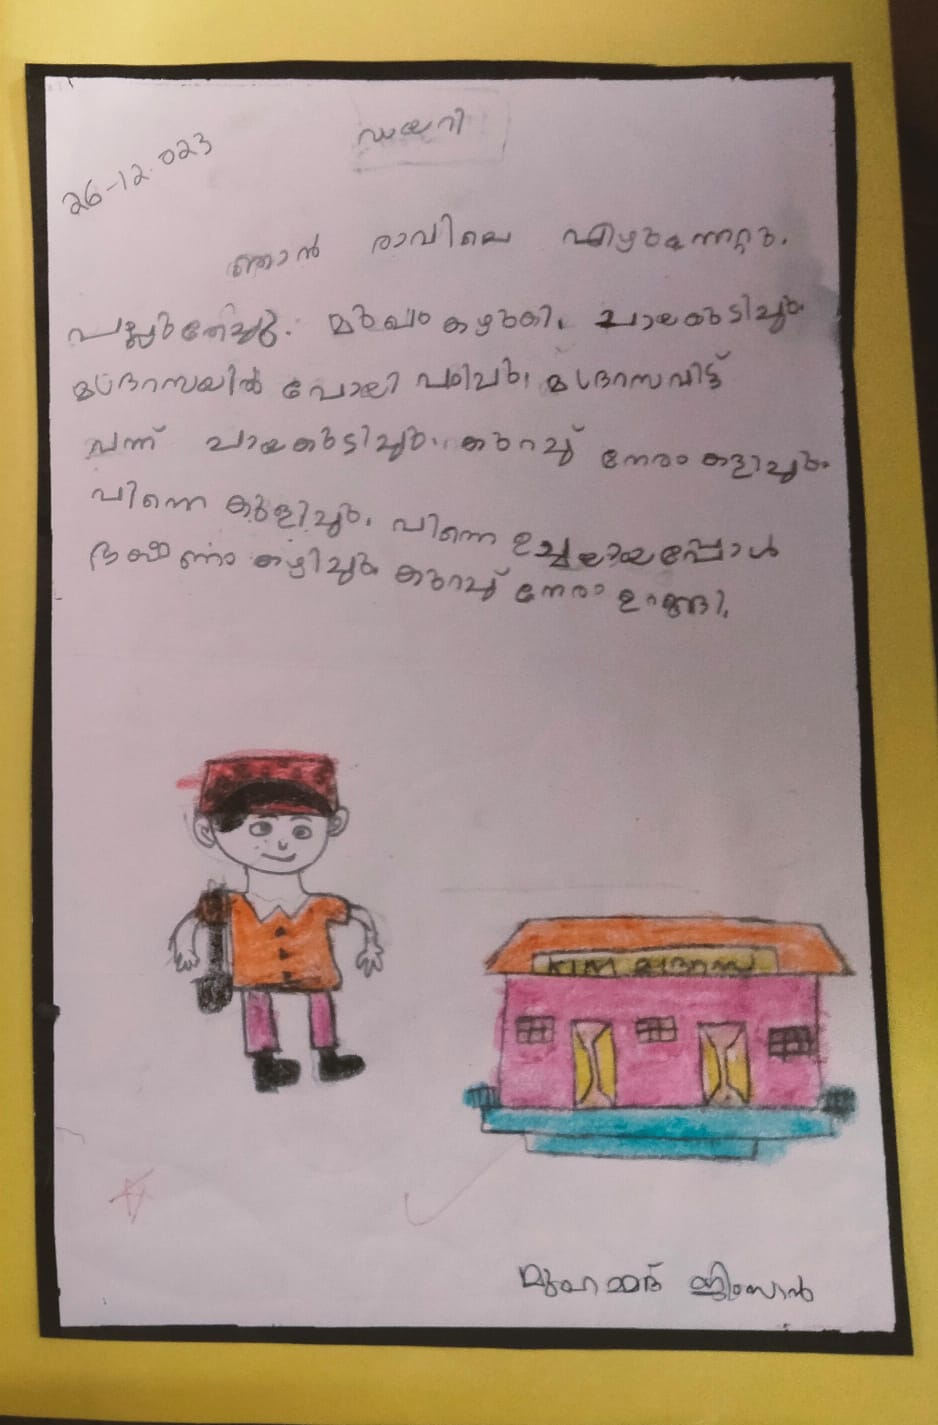 ഡയറി
26-12.023
ഞാൻ രാവിലെ എഴുന്നേറ്റു.
പല്ലുതേച്ചു. മുഖം കഴുകി. ചായകുടിച്ചു.
മദ്രസയിൽ പോയി പഠിച്ചു. മദ്രസവിട്ട്
വന്ന് ചായകുടിച്ചു. കുറച്ച് നേരം കളിച്ചു.
പിന്നെ കുളിച്ചു. പിന്നെ ഉച്ചയായപ്പോൾ
ഭക്ഷണം കഴിച്ചു കുറച്ച് നേരം ഉറങ്ങി.
മദ്രസ
മുഹമ്മദ്